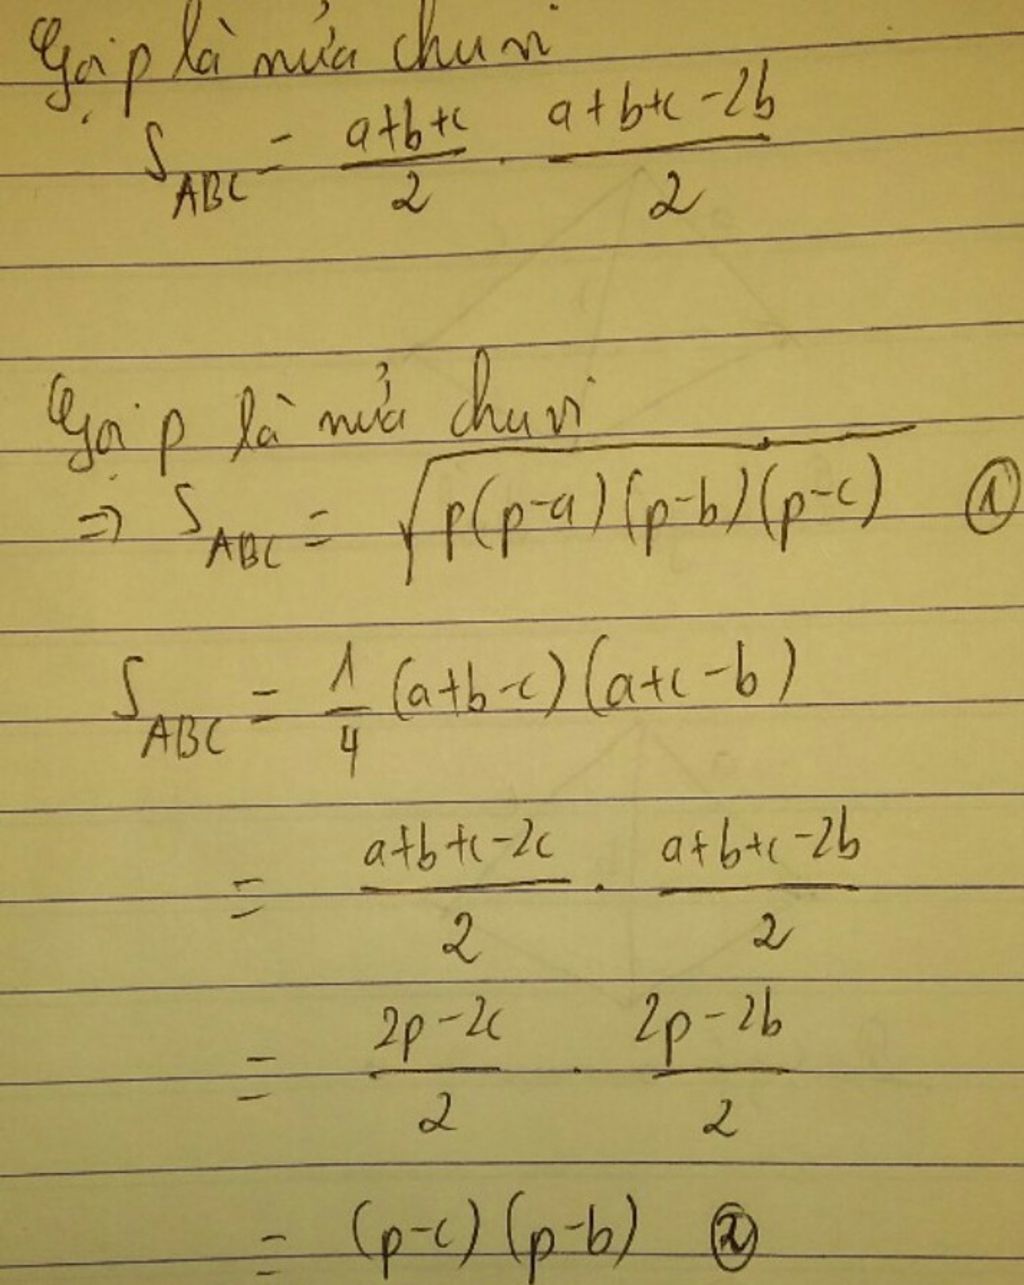 Gọi p là nửa chu vi
S_ABC = (a+b+c)/2 . (a+b+c-2b)/2
Gọi p là nửa chu vi
=> S_ABC = √(p(p-a)(p-b)(p-c)) ①
S_ABC = 1/4 (a+b-c)(a+c-b)
= (a+b+c-2c)/2 . (a+b+c-2b)/2
= (2p-2c)/2 . (2p-2b)/2
= (p-c)(p-b) ②